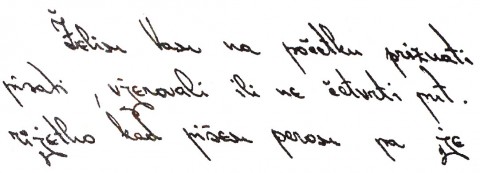 Želim Vam na početku priznati
pisati, vjerovali ili ne četvrti put.
rijetko kad pišem perom pa je